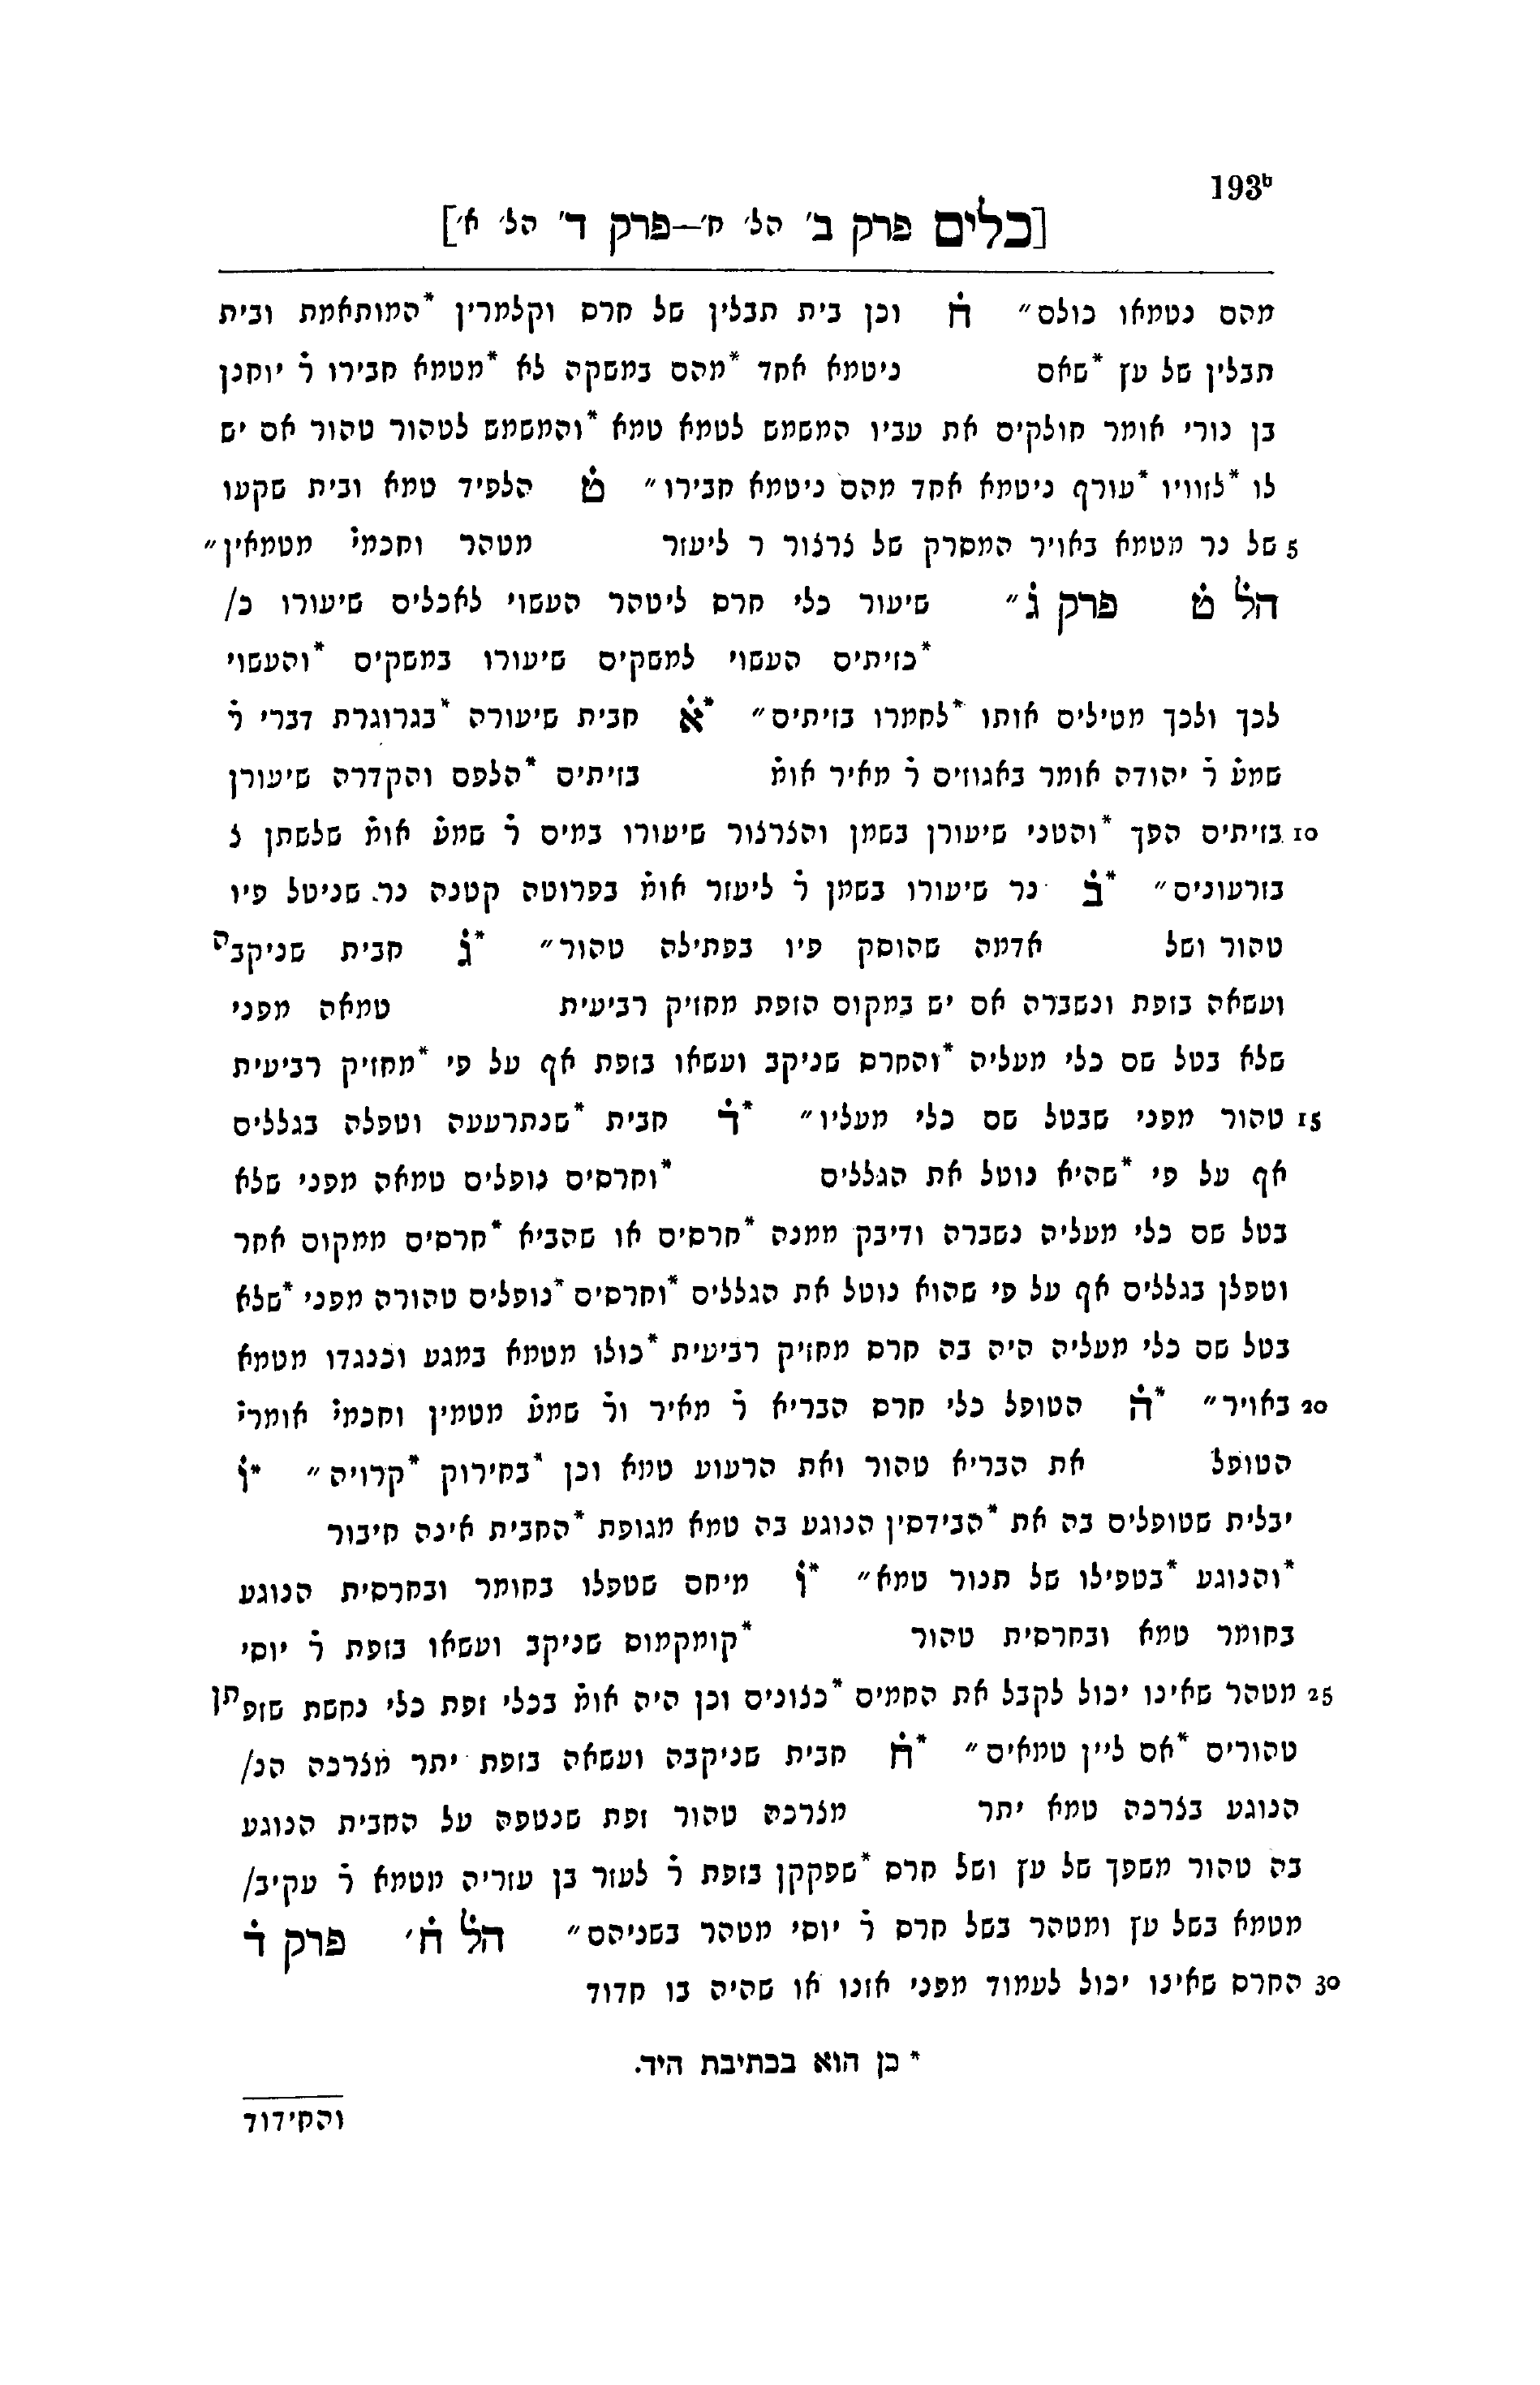 193ᵇ
[כלים פרק ב' הל' ח'—פרק ד' הל' א']
מהם נטמאו כולם״ ח̇ וכן בית תבלין של חרס וקלמרין *המותאמת ובית
תבלין של עץ *שאם ניטמא אחד *מהם במשקה לא *מטמא חבירו ר̇ יוחנן
בן נורי אומר חולקים את עביו המשמש לטמא טמא *והמשמש לטהור טהור אם יש
לו *לזוויו *עורף ניטמא אחד מהם ניטמא חבירו״ ט̇ הלפיד טמא ובית שקעו
5 של נר מטמא באויר המסרק של צרצור ר ליעזר מטהר וחכמי̇ מטמאין״
הל̇ ט̇ פרק ג̇״ שיעור כלי חרס ליטהר העשוי לאכלים שיעורו כ/
*כזיתים העשוי למשקים שיעורו במשקים *והעשוי
לכך ולכך מטילים אותו *לחמרו בזיתים״ *א̇ חבית שיעורה *בגרוגרת דברי ר̇
שמע̇ ר̇ יהודה אומר באגוזים ר̇ מאיר אומ̇ בזיתים *הלפס והקדרה שיעורן
10 בזיתים הפך *והטני שיעורן בשמן והצרצור שיעורו במים ר̇ שמע̇ אומ̇ שלשתן צ
בזרעונים״ *ב̇ נר שיעורו בשמן ר̇ ליעזר אומ̇ בפרוטה קטנה נר שניטל פיו
טהור ושל אדמה שהוסק פיו בפתילה טהור״ *ג̇ חבית שניקבה
ועשאה בזפת ונשברה אם יש במקום הזפת מחזיק רביעית טמאה מפני
שלא בטל שם כלי מעליה *והחרס שניקב ועשאו בזפת אף על פי *מחזיק רביעית
15 טהור מפני שבטל שם כלי מעליו״ *ד̇ חבית *שנתרעעה וטפלה בגללים
אף על פי *שהיא נוטל את הגללים *וחרסים נופלים טמאה מפני שלא
בטל שם כלי מעליה נשברה ודיבק ממנה *חרסים או שהביא *חרסים ממקום אחר
וטפלן בגללים אף על פי שהוא נוטל את הגללים *וחרסים *נופלים טהורה מפני *שלא
בטל שם כלי מעליה היה בה חרס מחזיק רביעית *כולו מטמא במגע וכנגדו מטמא
20 באויר״ *ה̇ הטופל כלי חרס הבריא ר̇ מאיר ור̇ שמע̇ מטמין וחכמי̇ אומרי̇
הטופל את הבריא טהור ואת הרעוע טמא וכן *בחירוק *קרויה״ *ו̇
יבלית שטופלים בה את *הבידסין הנוגע בה טמא מגופת *החבית אינה חיבור
*והנוגע *בטפילו של תנור טמא״ *ז̇ מיחם שטפלו בחומר ובחרסית הנוגע
בחומר טמא ובחרסית טהור *קומקמוס שניקב ועשאו בזפת ר̇ יוסי
25 מטהר שאינו יכול לקבל את החמים *כצונים וכן היה אומ̇ בכלי זפת כלי נחשת שזפתן
טהורים *אם ליין טמאים״ *ח̇ חבית שניקבה ועשאה בזפת יתר מצרכה הנ/
הנוגע בצרכה טמא יתר מצרכה טהור זפת שנטפה על החבית הנוגע
בה טהור משפך של עץ ושל חרס *שפקקן בזפת ר̇ לעזר בן עזריה מטמא ר̇ עקיב/
מטמא בשל עץ ומטהר בשל חרס ר̇ יוסי מטהר בשניהם״ הל̇ ח̇' פרק ד̇
30 החרס שאינו יכול לעמוד מפני אזנו או שהיה בו חדוד
* כן הוא בכתיבת היד.
והחידוד